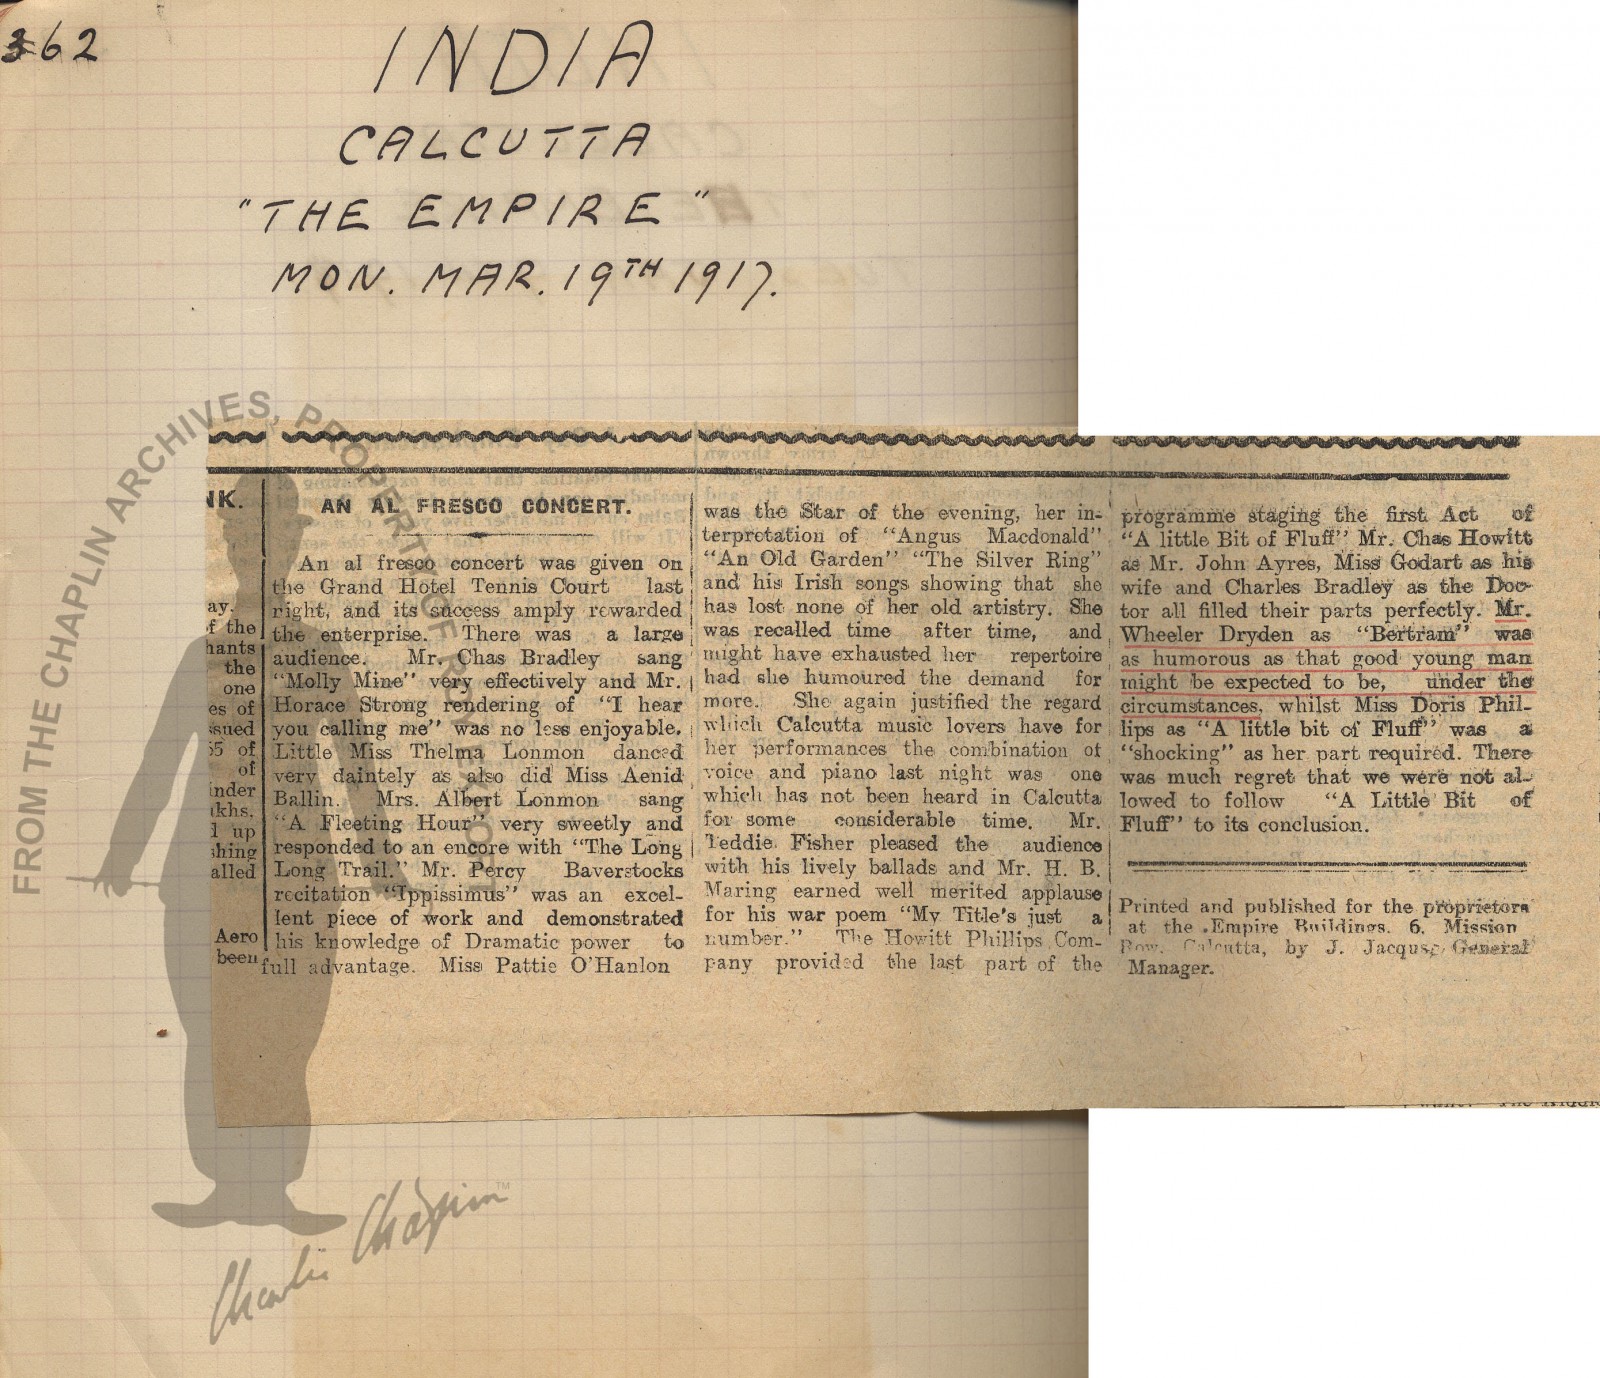 362
INDIA
CALCUTTA
"THE EMPIRE"
MON. MAR. 19TH 1917.
FROM THE CHAPLIN ARCHIVES, PROPERTY OF
NK.
ay.
f the
hants
the
one
es of
ssued
55 of
of
inder
akhs.
d up
shing
alled
Aero
been
AN AL FRESCO CONCERT.
An al fresco concert was given on
the Grand Hotel Tennis Court last
right, and its success amply rewarded
the enterprise. There was a large
audience. Mr. Chas Bradley sang
"Molly Mine" very effectively and Mr.
Horace Strong rendering of "I hear
you calling me" was no less enjoyable.
Little Miss Thelma Lonmon danced
very daintely as also did Miss Aenid
Ballin. Mrs. Albert Lonmon sang
"A Fleeting Hour" very sweetly and
responded to an encore with "The Long
Long Trail." Mr. Percy Baverstocks
recitation "Ippissimus" was an excel-
lent piece of work and demonstrated
his knowledge of Dramatic power to
full advantage. Miss Pattie O'Hanlon
was the Star of the evening, her in-
terpretation of "Angus Macdonald"
"An Old Garden" "The Silver Ring"
and his Irish songs showing that she
has lost none of her old artistry. She
was recalled time after time, and
might have exhausted her repertoire
had she humoured the demand for
more. She again justified the regard
which Calcutta music lovers have for
her performances the combination of
voice and piano last night was one
which has not been heard in Calcutta
for some considerable time. Mr.
Teddie Fisher pleased the audience
with his lively ballads and Mr. H. B.
Maring earned well merited applause
for his war poem "My Title's just a
number." The Howitt Phillips Com-
pany provided the last part of the
programme staging the first Act of
"A little Bit of Fluff" Mr. Chas Howitt
as Mr. John Ayres, Miss Godart as his
wife and Charles Bradley as the Doc-
tor all filled their parts perfectly. Mr.
Wheeler Dryden as "Bertram" was
as humorous as that good young man
might be expected to be, under the
circumstances, whilst Miss Doris Phil-
lips as "A little bit of Fluff" was a
"shocking" as her part required. There
was much regret that we were not al-
lowed to follow "A Little Bit of
Fluff" to its conclusion.
Printed and published for the proprietors
at the Empire Buildings. 6. Mission
Row. Calcutta, by J. Jacques, General
Manager.
Charlie Chaplin™